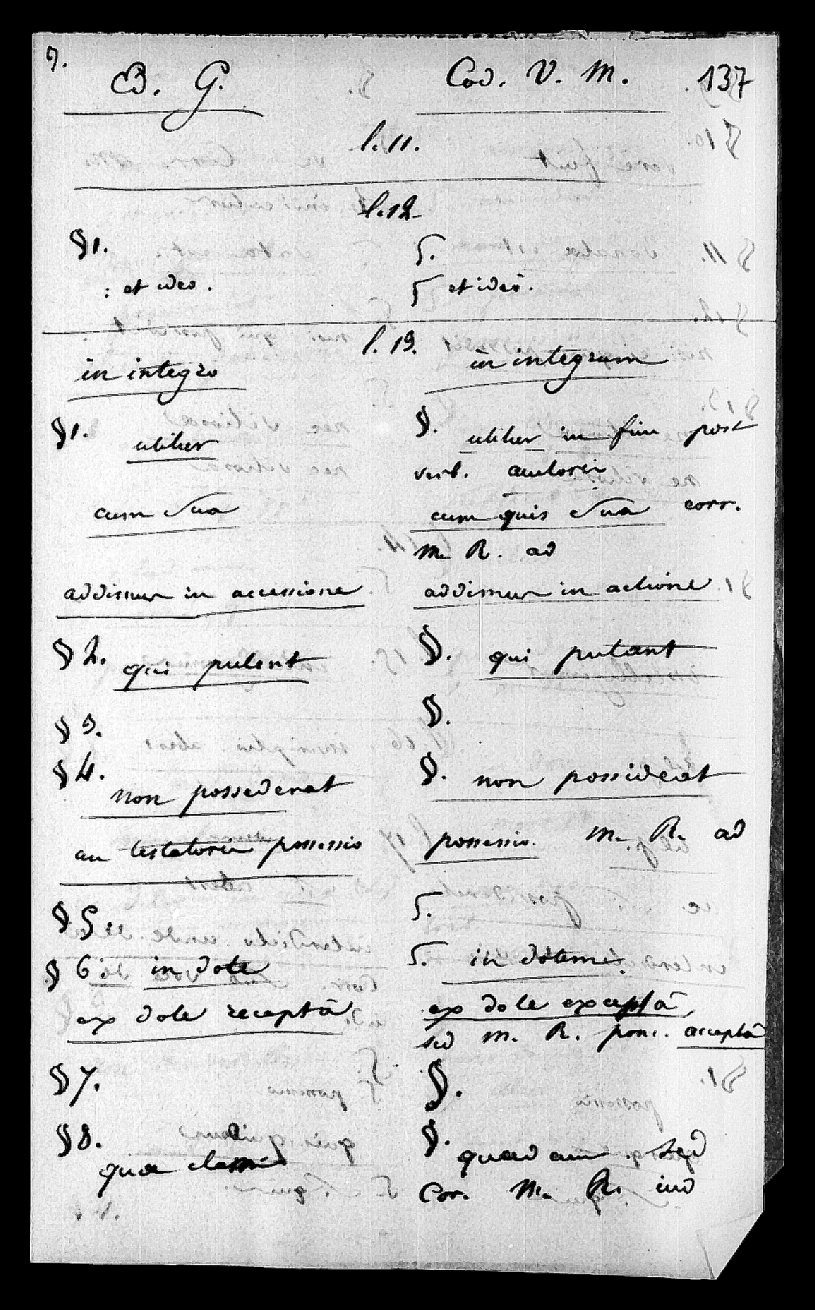 9.
Ed. G. Cod. V. M. 137
l. 11.
l. 12
§ 1. §.
: et ideo. § et ideo.
l. 13.
in integro in integrum
§ 1. utiliter §. utiliter in fin post
verb. auctoris
cum sua cum quis sua corr.
m. R. ad
addimus in accessione addimus in actione
§ 2. qui putent §. qui putant
§ 3. §.
§ 4. non possederat §. non possiderat
an testatoris possessio possessio. m. R. ad
§ 5 §.
§ 6 in dote §. in dotem.
ex dote receptâ ex dote exceptâ,
sed m. R. pon. acceptâ
§ 7. §.
§ 8. §.
quae quadam . sed
Cor. m. R. ind